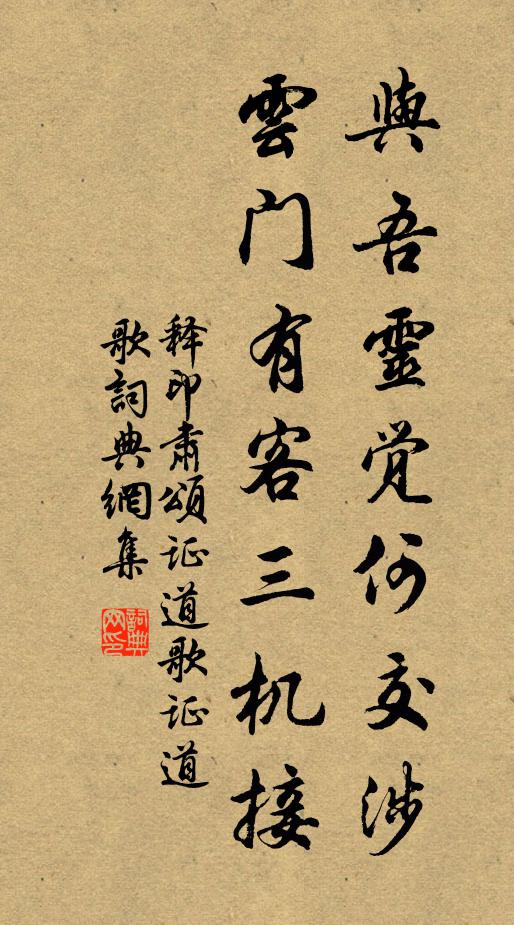 與吾靈觉何交涉
雲门有客三机接
释印肃颂证道歌证道
歌詞典網集
詞典网印